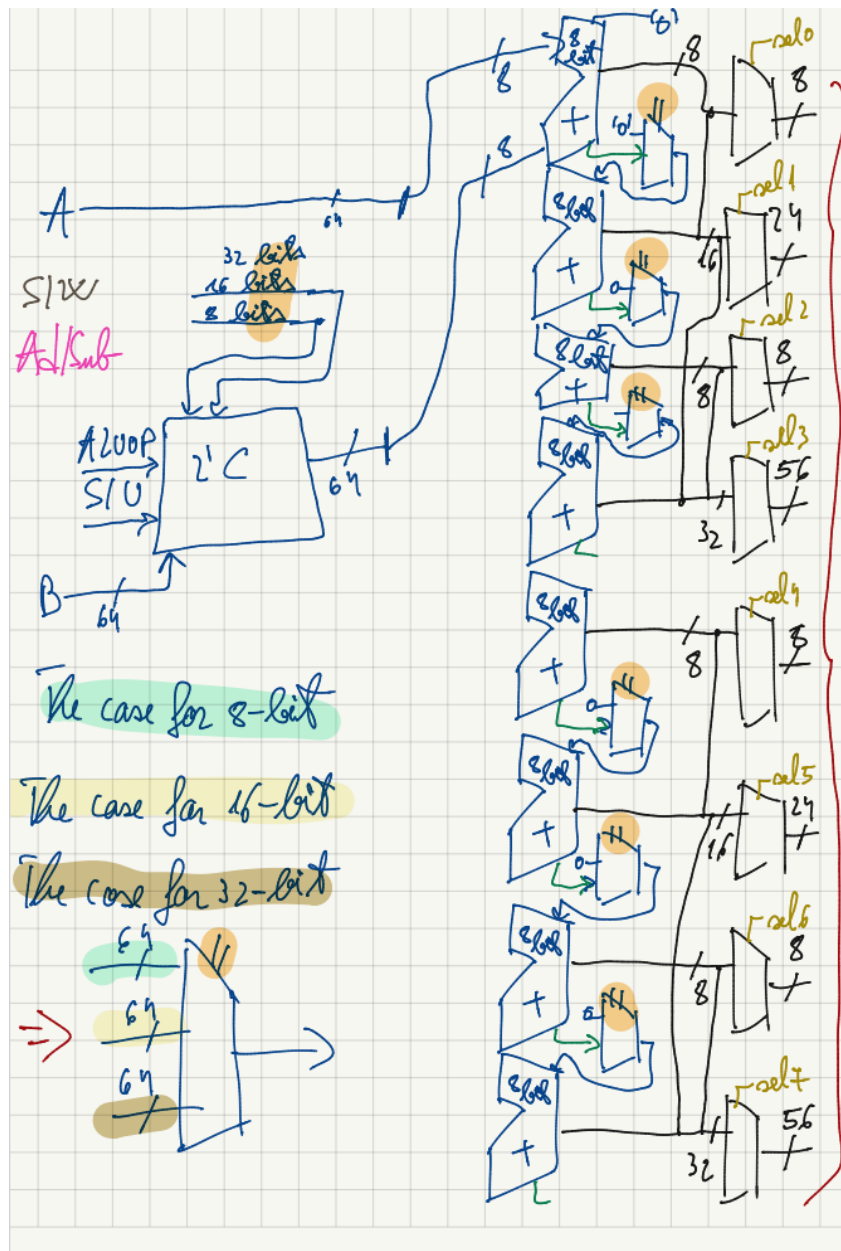 A
64
32 bits
16 bits
8 bits
S/W
Ad/Sub
S/U
2'C
64
B
64
The case for 8-bit
The case for 16-bit
The case for 32-bit
64
64
64
8
8
8 bit
+
'0'
8
sel0
8
8bit
+
0
16
sel1
24
8bit
+
8
sel2
8
8bit
+
32
sel3
56
8bit
+
0
8
sel4
8
8bit
+
0
16
sel5
24
8bit
+
0
8
sel6
8
8bit
+
32
sel7
56